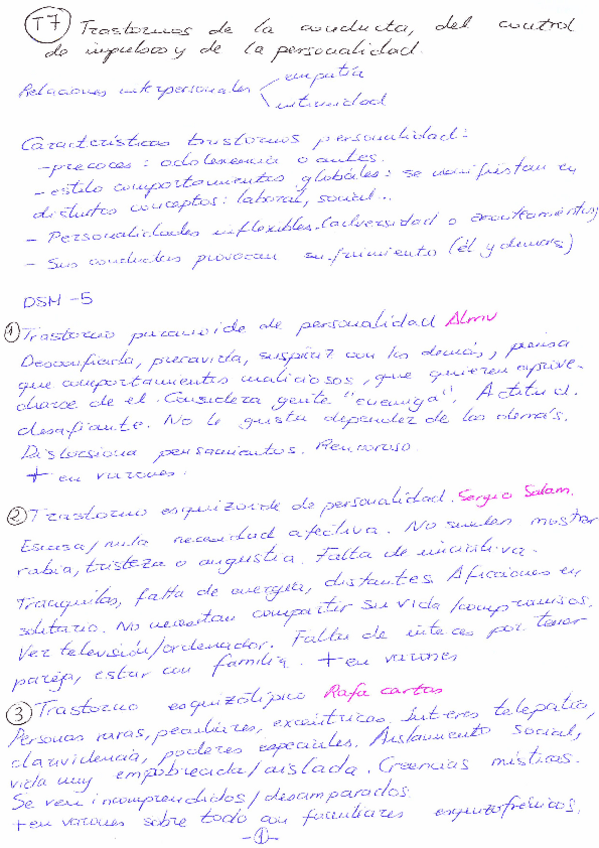 T7 Trastornos de la conducta, del control
de impulsos y de la personalidad.
Relaciones interpersonales empatía
intimidad
Características trastornos personalidad:
- precoces: adolescencia o antes.
- estilo comportamientos globales: se manifiestan en
distintos conceptos: laboral, social...
- Personalidades inflexibles. (adversidad o
- Sus conductas provocan sufrimiento (él y demás)
DSM-5
① Trastorno paranoide de personalidad
Desconfiada, precavida, suspicaz con los demás, piensa
que comportamientos maliciosos, que quieren aprove-
charse de el. Considera gente "enemiga". Actitud
desafiante. No le gusta depender de los demás.
Distorsiona pensamientos. Rencoroso.
+ en varones.
② Trastorno esquizoide de personalidad. Sergio Salam.
Escasa/nula necesidad afectiva. No suelen mostrar
rabia, tristeza o angustia. Falta de iniciativa.
Tranquilos, falta de energía, distantes. Aficiones en
solitario. No necesitan compartir su vida/compromisos.
Ver televisión/ordenador. Falta de interes por tener
pareja, estar con familia. + en varones
③ Trastorno esquizotípico Rafa cartas
Personas raras, peculiares, excéntricas. Interes telepatía,
clarividencia, poderes especiales. Aislamiento social,
vida muy empobrecida/aislada. Creencias místicas.
Se ven incomprendidos/desamparados.
+ en varones sobre todo con familiares esquizofrénicos.
-1-